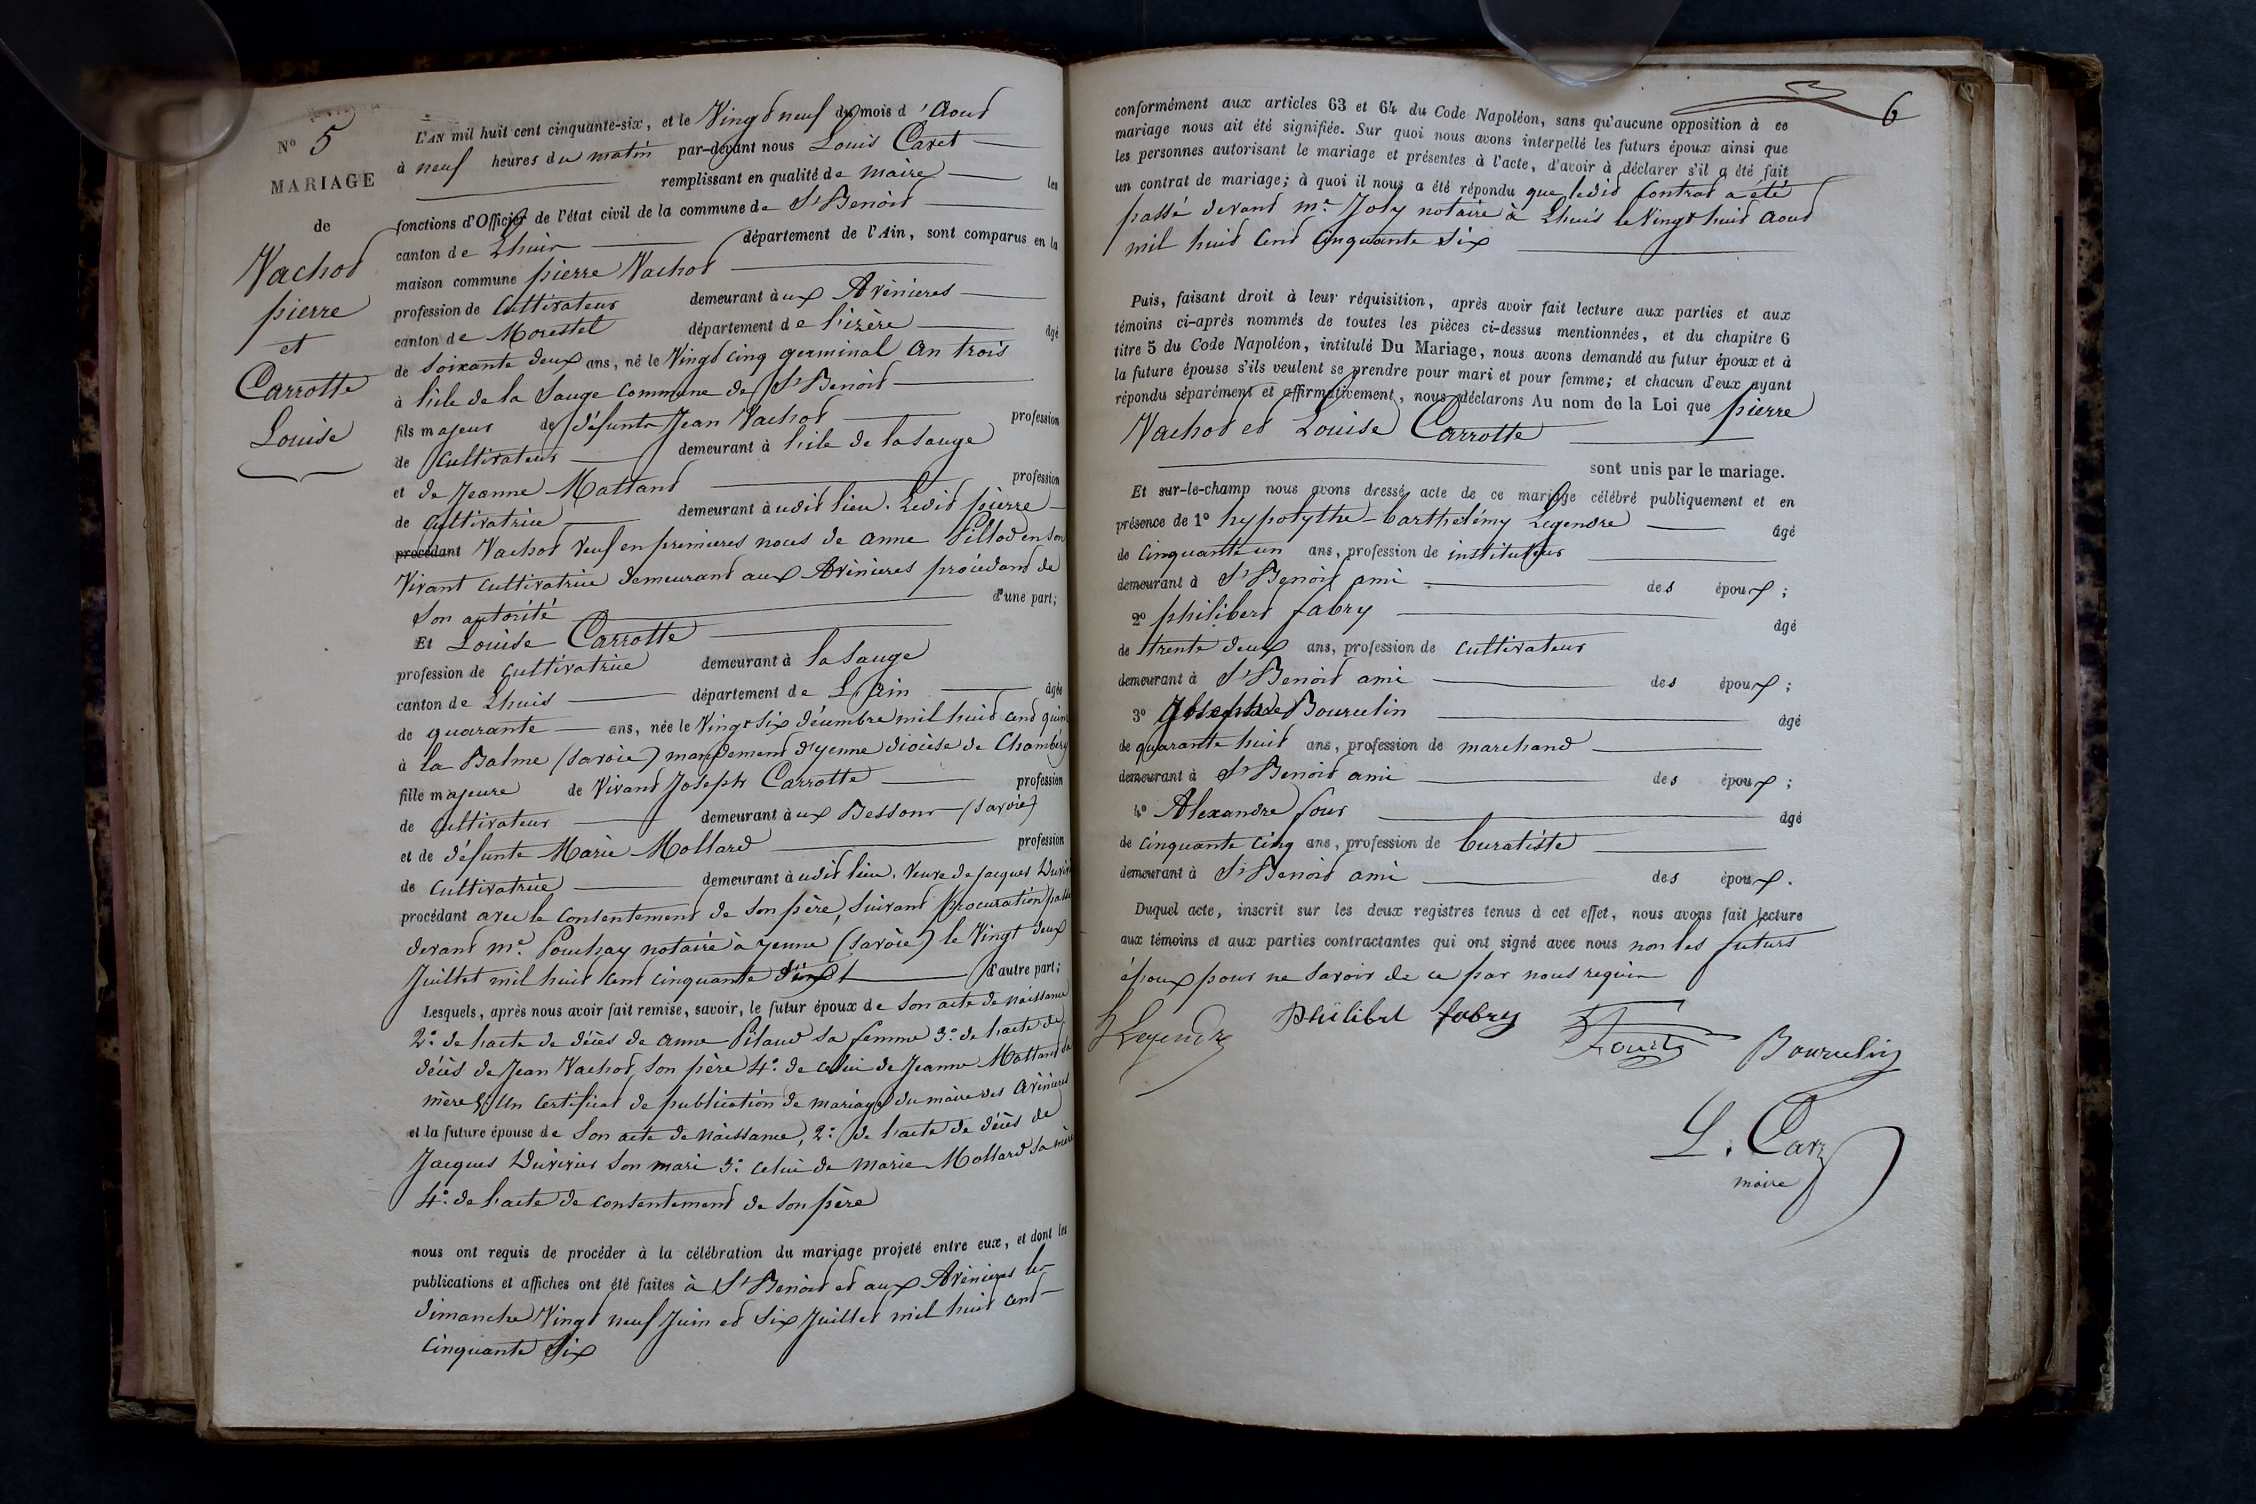 N° 5
MARIAGE
de
Vachod
pierre
et
Carrotte
Louise
L'AN mil huit cent cinquante-six, et le Vingd neuf du mois d'Aoud
à neuf heures du matin par-devant nous Louis Caret
remplissant en qualité de maire les
fonctions d'Officier de l'état civil de la commune de St Benoid
canton de Lhuis département de l'Ain, sont comparus en la
maison commune pierre Vachod
profession de Cultivateur demeurant à ux Avenieres
canton de Morestel département de l'izère âgé
de soixante deux ans, né le Vingd cinq germinal an trois
à l'ile de la Sauge commune de St Benoid
fils majeur de défunts Jean Vachod profession
de Cultivateur demeurant à l'ile de la Sauge
et de Jeanne Mattand profession
de Cultivatrice demeurant à udid lieu. Ledid pierre
procédant Vachod Veuf en premieres noces de anne Pillod en son
Vivant cultivatrice demeurand aux Avenieres procédand de
son autorité d'une part;
Et Louise Carrotte
profession de cultivatrice demeurant à la Sauge
canton de Lhuis département de L'Ain âgée
de quarante ans, née le Vingt Six décembre mil huid cend quin
à la Balme (Savoie) mandemend d'yenne diocèse de Chambéry
fille majeure de Vivand Joseph Carrotte profession
de Cultivateur demeurant à ux Bessons (Savoie)
et de défunte Marie Mollard profession
de Cultivatrice demeurant à udid lieu, Veuve de Jacques Duvivi
procédant avec le Consentemend de son père, suivand procuration passé
devand me. Pouchay notaire à yenne (Savoie) le Vingt deux
Juillet mil huit cent cinquante d'autre part;
Lesquels, après nous avoir fait remise, savoir, le futur époux de son acte de naissance
2° de l'acte de décès de anne Pilaud sa femme 3° de l'acte de
décès de Jean Vachod, son père 4° de celui de Jeanne Mattand sa
mère 5° Un certificat de publication de mariage du maire des Avenieres
et la future épouse de son acte de naissance, 2° de l'acte de décès de
Jacques Duvivier son mari 3° celui de marie Mollard sa mère
4° de l'acte de consentemend de son père
nous ont requis de procéder à la célébration du mariage projeté entre eux, et dont les
publications et affiches ont été faites à St Benoid ed aux Avenieres les
dimanche Vingd neuf Juin ed Six Juillet mil huit cend
cinquante Six
6
conformément aux articles 63 et 64 du Code Napoléon, sans qu'aucune opposition à ce
mariage nous ait été signifiée. Sur quoi nous avons interpellé les futurs époux ainsi que
les personnes autorisant le mariage et présentes à l'acte, d'avoir à déclarer s'il a été fait
un contrat de mariage; à quoi il nous a été répondu que ledid Contrad a été
passé devand me. Joly notaire à Lhuis le Vingt huid aoud
mil huid Cend Cinquante Six
Puis, faisant droit à leur réquisition, après avoir fait lecture aux parties et aux
témoins ci-après nommés de toutes les pièces ci-dessus mentionnées, et du chapitre 6
titre 5 du Code Napoléon, intitulé Du Mariage, nous avons demandé au futur époux et à
la future épouse s'ils veulent se prendre pour mari et pour femme; et chacun d'eux ayant
répondu séparément et affirmativement, nous déclarons Au nom de la Loi que pierre
Vachod ed Louise Carrotte
sont unis par le mariage.
Et sur-le-champ nous avons dressé acte de ce mariage célébré publiquement et en
présence de 1° hypolythe-barthelémy Legendre âgé
de cinquante un ans, profession de instituteur
demeurant à St Benoid ami des époux;
2° philiberd fabry âgé
de trente deux ans, profession de cultivateur
demeurant à St Benoid ami des époux;
3° Bourcelin âgé
de quarante huid ans, profession de marchand
demeurant à St Benoid ami des époux;
4° Alexandre four âgé
de cinquante cinq ans, profession de buratiste
demeurant à St Benoid ami des époux.
Duquel acte, inscrit sur les deux registres tenus à cet effet, nous avons fait lecture
aux témoins et aux parties contractantes qui ont signé avec nous non les futurs
époux pour ne Savoir de ce par nous requis
h Legendre
Philibert fabry
Fours
Bourcelin
L. Caret
maire